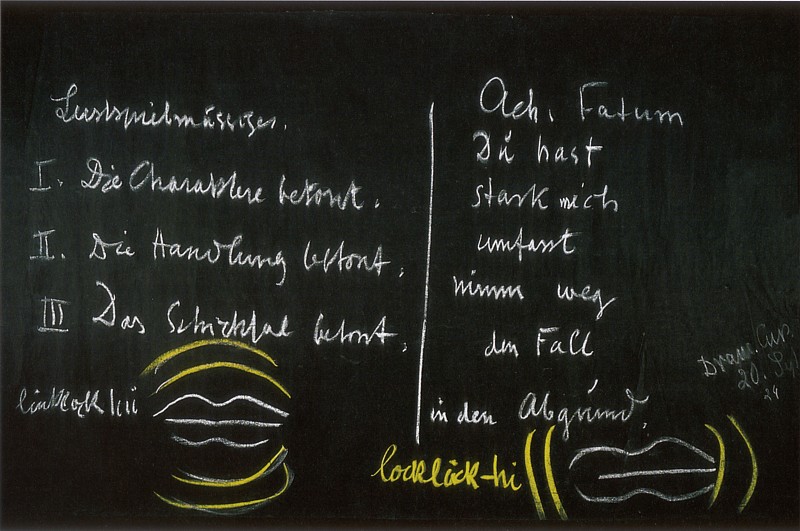 Lustspielmässiges.
I. Die Charaktere betont.
II. Die Handlung betont.
III Das Schicksal betont.
Ach, Fatum
Du hast
stark mich
umfasst
nimm weg
den Fall
in den Abgrund.
locklöck-hi
Dram. Curs.
20. Spt
24